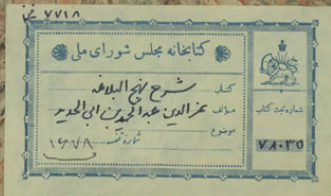 ۷۷۱۸
کتابخانه مجلس شورای ملی
کتاب شرح نهج البلاغه
مؤلف عزالدین عبدالحمید بن ابی الحدید
موضوع
شماره ثبت کتاب
۷۸۰۳۵